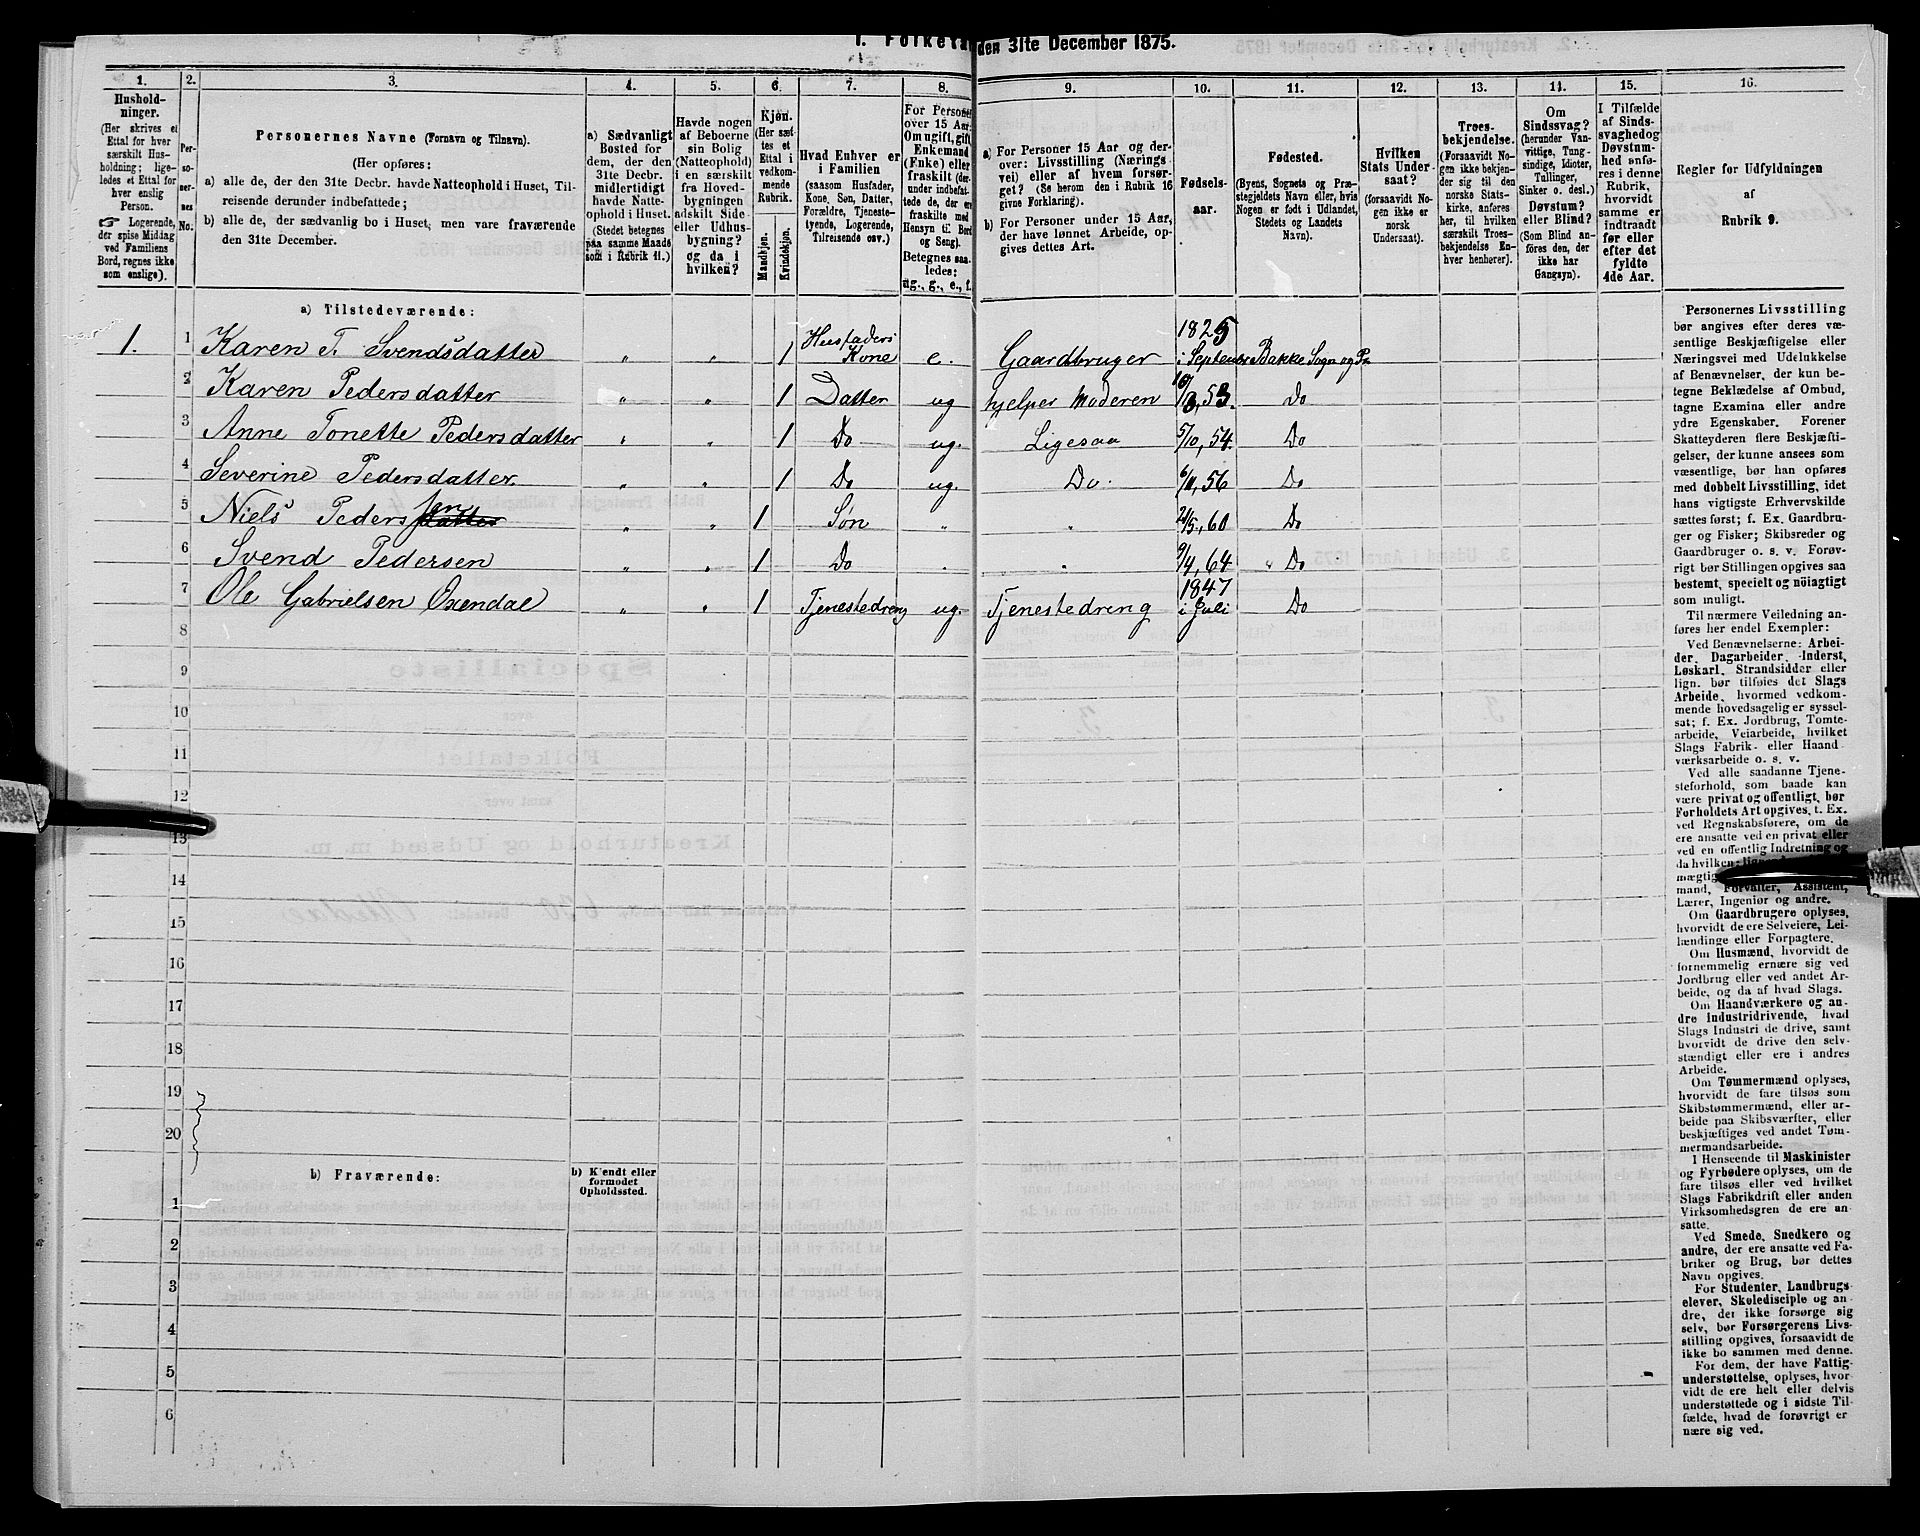 1. Folketal den 31te December 1875.
1.
2.
3.
4.
5.
6.
7.
8.
9.
10.
11.
12.
13.
14.
15.
16.
Hushold-
ninger.
(Her skrives et
Ettal for hver
særskilt Hus-
holdning; lige-
ledes et Ettal for
hver enslig
Person.
☞ Logerende,
der spise Middag
ved Familiens
Bord, regnes ikke
som enslige).
Per-
so-
ner-
nes
No.
Personernes Navne (Fornavn og Tilnavn).
(Her opføres:
a) alle de, der den 31te Decbr. havde Natteophold i Huset, Til-
reisende derunder indbefattede;
b) alle de, der sædvanlig bo i Huset, men vare fraværende
den 31te December.
a) Sædvanligt
Bosted for
dem, der den
31te Decbr.
midlertidigt
havde Natte-
ophold i Huset.
(Stedet betegnes
paa samme Maade
som i Rubrik 11.)
Havde nogen
af Beboerne
sin Bolig
(Natteophold)
i en særskilt
fra Hoved-
bygningen
adskilt Side-
eller Udhus-
bygning?
og da i
hvilken?
Kjøn.
(Her sæt-
tes et
Ettal i
vedkom-
mende
Rubrik.
Mandkjøn.
Kvindekjøn.
Hvad Enhver er
i Familien
(saasom Husfader,
Kone, Søn, Datter,
Forældre, Tjeneste-
tyende, Logerende,
Tilreisende osv.)
For Personer
over 15 Aar:
Om ugift, gift,
Enkemand
(Enke) eller
fraskilt (der-
under indbefat-
tede de, der ere
fraskilte med
Hensyn til Bord
og Seng).
Betegnes saa-
ledes:
ug., g., e., f.
a) For Personer 15 Aar og der-
over: Livsstilling (Nærings
vei) eller af hvem forsør-
get? (Se herom den i Rubrik 16
givne Forklaring).
b) For Personer under 15 Aar,
der have lønnet Arbeide, op-
gives dettes Art.
Fødsels-
aar.
Fødested.
(Byens, Sognets og Præ-
stegjeldets Navn eller, hvis
Nogen er født i Udlandet,
Stedets og Landets
Navn).
Hvilken
Stats Under-
saat?
(forsaavidt No-
gen ikke er
norsk
Undersaat).
Troes-
bekjendelse.
(Forsaavidt No-
gen ikke bekjen-
der sig til den
norske Stats-
kirke, anføres
her, til hvilken
særskilt Troes-
bekjendelse En-
hver henhører).
Om
Sindssvag?
(herunder Van-
vittige, Tung-
sindige, Idioter,
Tullinger,
Sinker o. desl.)
Døvstum?
eller Blind?
(Som Blind an-
føres den, der
ikke har
Gangsyn).
I Tilfælde
af Sinds-
svaghed og
Døvstum-
hed anfø-
res i denne
Rubrik,
hvorvidt
samme er
indtraadt
før eller
efter det
fyldte
4de Aar.
Regler for Udfyldningen
af
Rubrik 9.
a) Tilstedeværende:
1. 1 Karen T. Svendsdatter „ „ 1 Huusfaders Kone e. Gaardbruger 1825 i September Bakke Sogn og Pr.
2 Karen Pedersdatter „ „ 1 Datter ug hjelper Moderen 53. Do
3 Anne Tonette Pedersdatter „ „ 1 Do ug. Ligesaa 5/10, 54. Do
4 Severine Pedersdatter „ „ 1 Do ug. Do. 6/11, 56 Do
5 Niels Peders datter sen „ „ 1 Søn „ „ 21/5., 60 Do
6 Svend Pedersen „ „ 1 Do „ „ 9/4, 64 „ Do
7 Ole Gabrielsen Oxendal „ „ 1 Tjenestedreng ug. Tjenestedreng 1847 i Juli Do
8
9
10
11
12
13
14
15
16
17
18
19
20
b) Fraværende:
b) Kjendt eller
formodet
Opholdssted.
1
2
3
4
5
6
Personernes Livsstilling
bør angives efter deres væ-
sentlige Beskjæftigelse eller
Næringsvei med Udelukkelse
af Benævnelser, der kun be-
tegne Beklædelse af Ombud,
tagne Examina eller andre
ydre Egenskaber. Forener
Skatteyderen flere Beskjæfti-
gelser, der kunne ansees som
væsentlige, bør han opføres
med dobbelt Livsstilling, idet
hans vigtigste Erhvervskilde
sættes først; f. Ex. Gaardbru-
ger og Fisker; Skibsreder og
Gaardbruger o. s. v. Forøv-
rigt bør Stillingen opgives saa
bestemt, specielt og nöiagtigt
som muligt.
Til nærmere Veiledning an-
føres her endel Exempler:
Ved Benævnelserne: Arbei-
der, Dagarbeider, Inderst,
Løskarl, Strandsidder eller
lign. bør tilføies det Slags
Arbeide, hvormed vedkom-
mende hovedsagelig er syssel-
sat; f. Ex. Jordbrug, Tomte-
arbeide, Veiarbeide, hvilket
Slags Fabrik- eller Haand
værksarbeide o. s. v.
Ved alle saadanne Tjene-
steforhold, som baade kan
være privat og offentligt, bør
Forholdets Art opgives, t. Ex.
ved Regnskabsførere, om de
ere ansatte ved en privat eller
ved en offentlig Indretning og
da hvilken;
mand, Forvalter, Assistent,
Lærer, Ingeniør og andre.
Om Gaardbrugere oplyses,
hvorvidt de ere Selveiere, Lei-
lændinge eller Forpagtere.
Om Husmænd, hvorvidt de
fornemmelig ernære sig ved
Jordbrug eller ved andet Ar-
beide, og da af hvad Slags.
Om Haandværkere og an-
dre industridrivende, hvad
Slags Industri de drive, samt
hvorvidt de drive den selv-
stændigt eller ere i andres
Arbeide.
Om Tømmermænd oplyses,
hvorvidt de fare tilsøs som
Skibstømmermænd, eller ar-
beide paa Skibsværfter, eller
beskjæftiges ved andet Tøm-
mermandsarbeide.
I Henseende til Maskinister
og Fyrbødere oplyses, om de
fare tilsøs eller ved hvilket
Slags Fabrikdrift eller anden
Virksomhedsgren de ere an-
satte.
Ved Smede, Snedkere og
andre, der ere ansatte ved Fa-
briker og Brug, bør dettes
Navn opgives.
For Studenter, Landbrugs
elever, Skoledisciple og an-
dre, det ikke forsørge sig
selv, bør Forsørgerens Livs-
stilling opgives, forsaavidt de
ikke bo sammen med denne.
For dem, der have Fattig-
understøttelse, oplyses, hvor-
vidt de ere helt eller delvis
understøttede og i sidste Til-
fælde, hvad de forøvrigt er
nære sig ved.